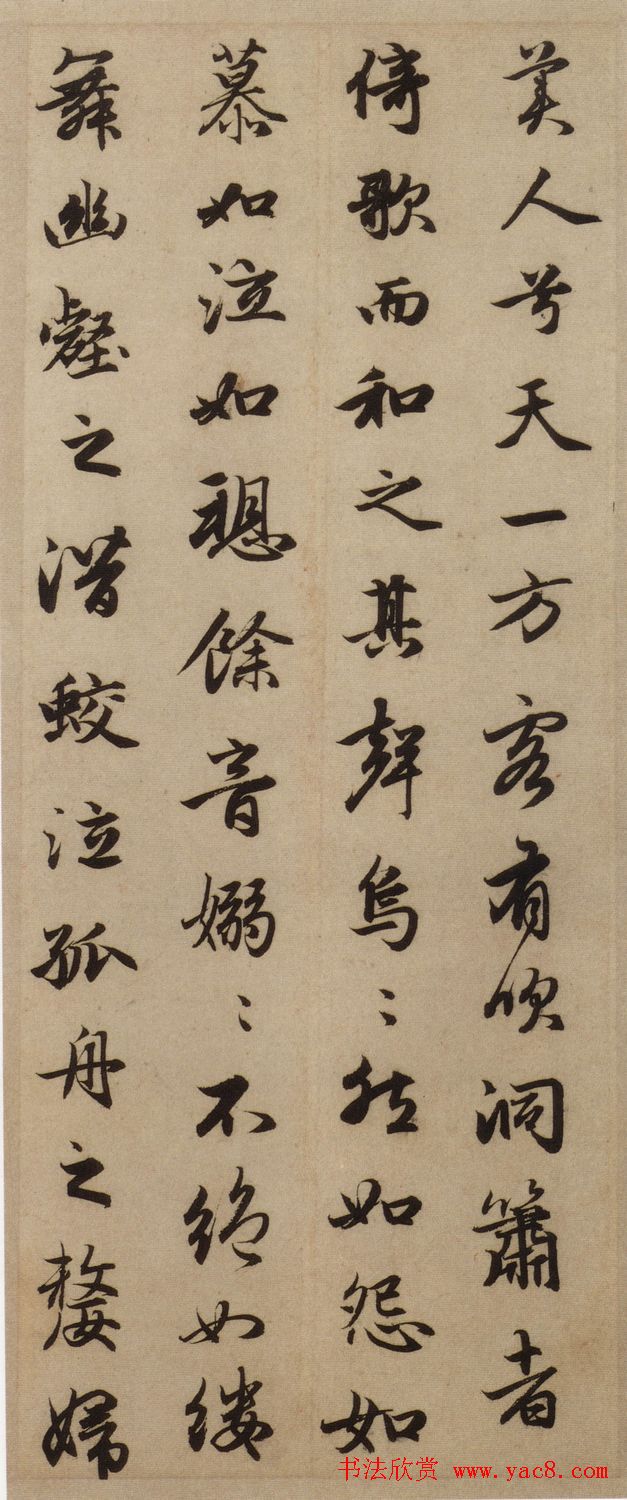 美人兮天一方客有吹洞簫者
倚歌而和之其聲烏〻然如怨如
慕如泣如愬餘音嫋〻不絕如縷
舞幽壑之潛蛟泣孤舟之嫠婦
书法欣赏 www.yac8.com